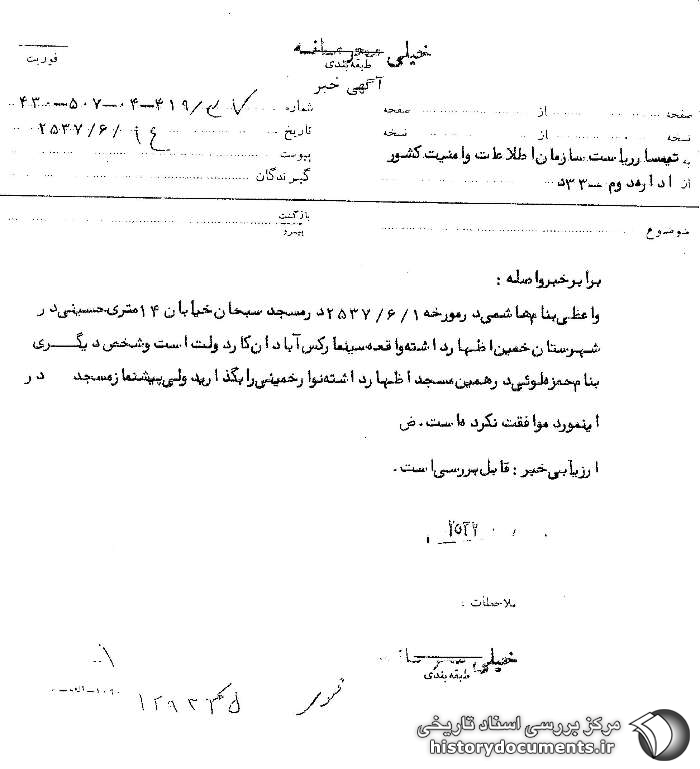 خیلی محرمانه
طبقه‌بندی
فوریت
آگهی خبر
صفحه از صفحه
نسخه از نسخه
شماره
تاریخ ۲۵۳۷/۶/
پیوست
گیرندگان
به تیمسار ریاست سازمان اطلاعات و امنیت کشور
از اداره دوم – ۳۳د
موضوع
بازگشت
پیرو
برابر خبر واصله :
واعظی بنام هاشمی در مورخه ۲۵۳۷/۶/۱ در مسجد سبحان خیابان ۱۴ متری حسینی در
شهرستان خمین اظهار داشته واقعه سینما رکس آبادان کار دولت است و شخص دیگری
بنام حمزه لوئی در همین مسجد اظهار داشته نوار خمینی را بگذارید ولی پیشنماز مسجد در
اینمورد موافقت نکرده است . ض
ارزیابی خبر : قابل بررسی است .
ملاحظات :
خیلی محرمانه
طبقه‌بندی
مرکز بررسی اسناد تاریخی
historydocuments.ir